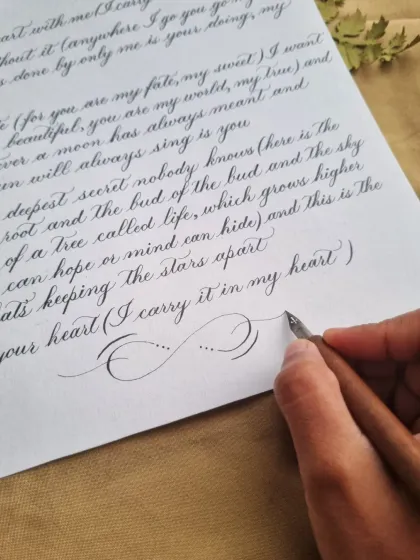 art with me (I carry
hout it (anywhere I go you go my
s done by only me is your doing, my
e (for you are my fate, my sweet) I want
beautiful, you are my world, my true) and
ver a moon has always meant and
un will always sing is you
deepest secret nobody knows (here is the
root and the bud of the bud and the sky
of a tree called life, which grows higher
can hope or mind can hide) and this is the
ats keeping the stars apart
your heart (I carry it in my heart )